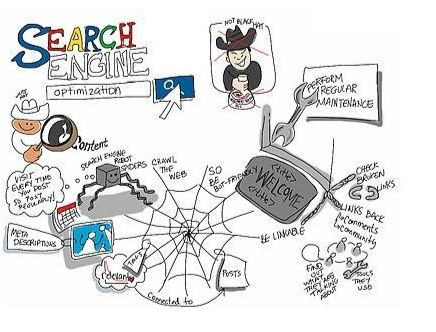 SEARCH
ENGINE
optimization
NOT BLACK HAT
WHITE HAT
Content
VISIT
EVERY TIME
YOU POST
SO POST
REGULARLY!
SEARCH ENGINE
ROBOT
SPIDERS
CRAWL
THE
WEB
SO
BE
BOT-FRIENDLY
PERFORM
REGULAR
MAINTENANCE
<title>
WELCOME
</title>
CHECK
BROKEN
LINKS
LINKS BACK
Comments
Community
BE LINKABLE
META
DESCRIPTIONS
relevant
TAGS
POSTS
Connected to
FIND
OUT
WHAT
THEY ARE
TALKING
ABOUT
TOOLS
THEY
USE